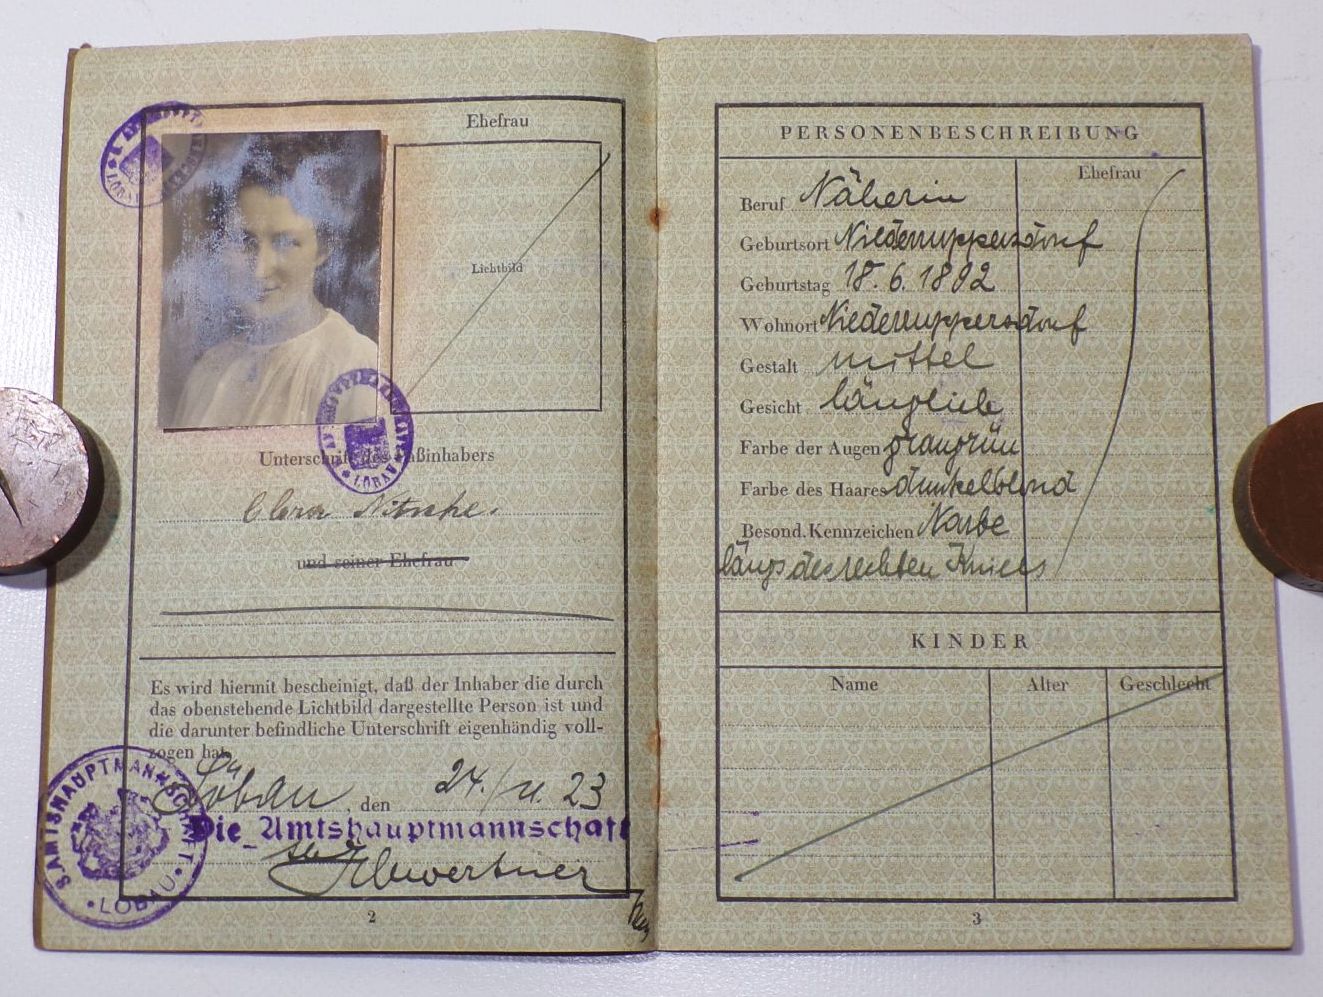 Ehefrau
Lichtbild
Unterschrift des Paßinhabers
Clara Nitsche.
und seiner Ehefrau
Es wird hiermit bescheinigt, daß der Inhaber die durch
das obenstehende Lichtbild dargestellte Person ist und
die darunter befindliche Unterschrift eigenhändig voll-
zogen hat.
Löbau, den 24./11. 23
Die Amtshauptmannschaft
S. AMTSHAUPTMANNSCHAFT
LÖBAU
LÖBAU
2
PERSONENBESCHREIBUNG
Ehefrau
Beruf Näherin
Geburtsort Niederruppersdorf
Geburtstag 18. 6. 1892
Wohnort Niederruppersdorf
Gestalt mittel
Gesicht länglich
Farbe der Augen graugrün
Farbe des Haares dunkelblond
Besond. Kennzeichen Narbe
längs des rechten Knies
KINDER
Name Alter Geschlecht
3